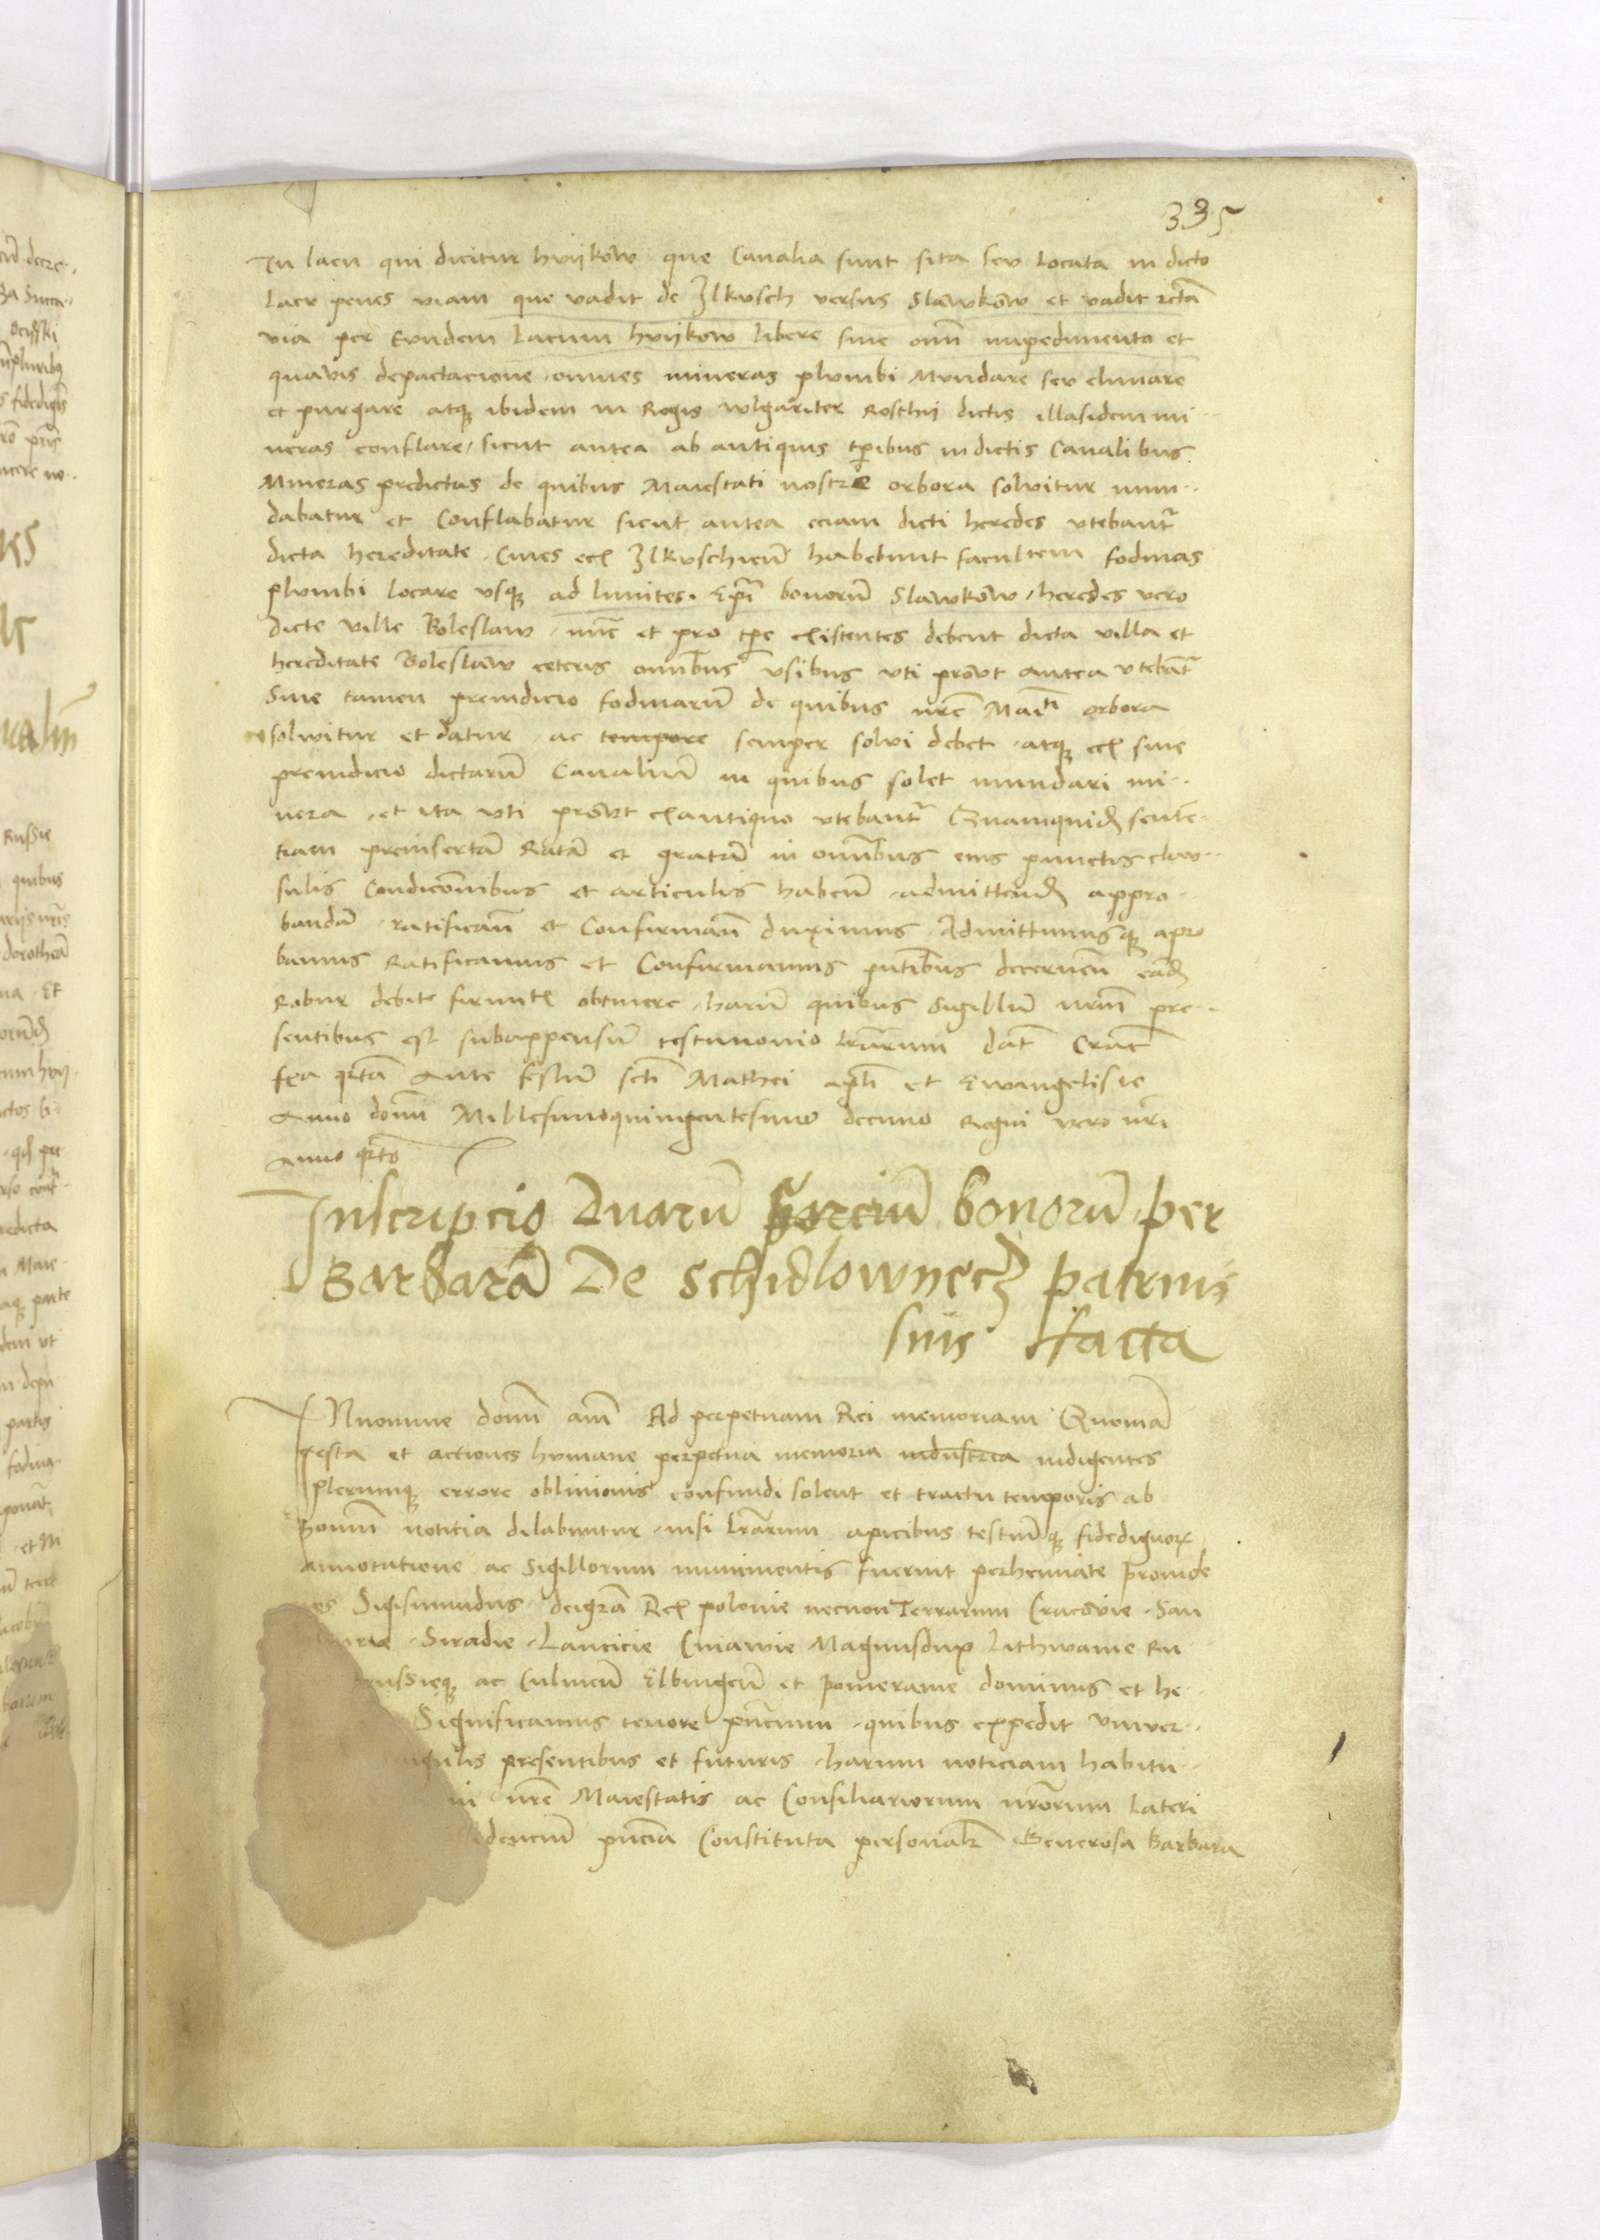 335
In lacu qui dicitur hvijkow que Canalia sunt sita seu locata in dicto
lacu penes viam que vadit de Ilkusch versus Slawkow et vadit rectā
via per Eundem lacum hvijkow libere sine omni impedimento et
quavis depactacione omnes mineras plumbi Mundare seu elimare
et purgare atqꝫ ibidem in Rogis wlgariter Rosthij dictis illasidem mi-
neras conflare sicut antea ab antiquis tp̄ribus in dictis Canalibus
Mineras predictas de quibus Maiestati nostre orbora solvitur mun-
dabatur et Conflabatur sicut antea eciam dicti heredes vtebantr
dicta hereditate Cives eciā Ilkuschien̄ habebunt facultem fodinas
plumbi locare vsqꝫ ad limites Ep̄i bonorū Slawkow heredes vero
dicte ville Boleslaw nūc et pro tp̄re existentes debent dicta villa et
hereditate Boleslaw ceteris omībus vsibus vti prout antea vtebātr
Sine tamen preiudicio fodinarū de quibus nr̄e Maiti orbora
solvitur et datur ac tempore semper solvi debet atqꝫ eciā sine
preiudicio dictarū Canaliū in quibus solet mundari mi-
nera et ita vti prout exantiquo vtebantr Quamquidē senten-
tiam preinsertā Ratā et gratā in omībus eius punctis clau-
sulis Condicionibus et articulis haben̄ admittendā appro-
bandā ratifican̄ et Confirman̄ duximus Admittimusqꝫ apro
bamus Ratificamus et Confirmamus pn̄tibus decernen̄ eādē
Robur debite firmitꝭ obtinere harū quibus Sigillū nrm̄ pre-
sentibus est subappensū testimonio lr̄arum dat̄ Crac̄
feria qrtā Ante festū scti Mathei apli et Ewangeliste
Anno domi Millesimoquingentesimo decimo Regni vero nri
anno qrto
Inscripcio Duarū parciū bonorū per
Barbarā De Schidlowyecz patruis
suis facta
IN nomine domi amē Ad perpetuam Rei memoriam Quoniā
gesta et actiones humane perpetua memoria industria indigentes
plerumqꝫ errore oblivionis confundi solent et tractu temporis ab
homī noticia dilabuntur nisi lr̄arum apicibus testiūqꝫ fidedignorꝫ
annotatione ac Sigillorum munimentis fuerint perhennate Proinde
nos Sigismundus deigrā Rex polonie necnon Terrarum Cracovie San
Siradie Lancicie Cuiawie Magnusdux Lithwanie Ru
prussieqꝫ ac Culmen̄ Elbingen̄ et Pomeranie dominus et he-
Significamus tenore pn̄cium quibus expedit vniver-
ngulis presentibus et futuris harum noticiam habitu-
nr̄e Maiestatis ac Consiliariorum nrōrum lateri
idenciū pn̄cia Constituta personalꝫ Generosa Barbara